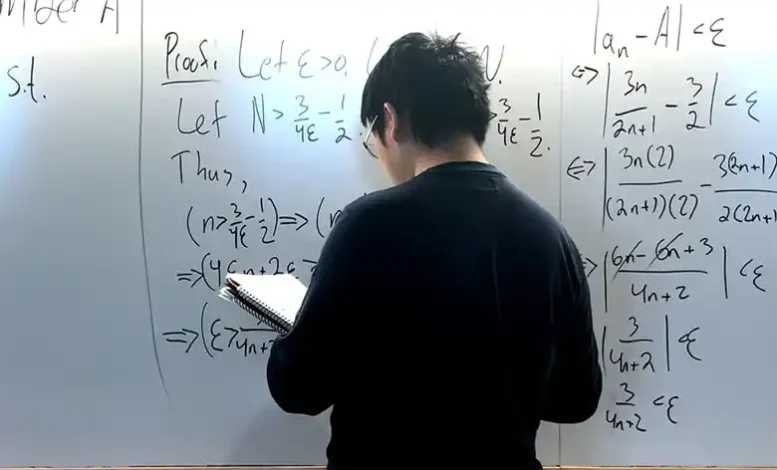 s.t.
Proof: Let ε>0.
Let N > 3/4ε - 1/2 3/4ε - 1/2.
Thus,
(n > 3/4ε - 1/2) => (n
=> (4εn+2ε >
=> (ε >
|aₙ - A| < ε
<=> |3n/2n+1 - 3/2| < ε
<=> |3n(2)/(2n+1)(2) - 3(2n+1)/2(2n+1)
=> |6n - 6n + 3/4n+2| < ε
|3/4n+2| < ε
3/4n+2 < ε